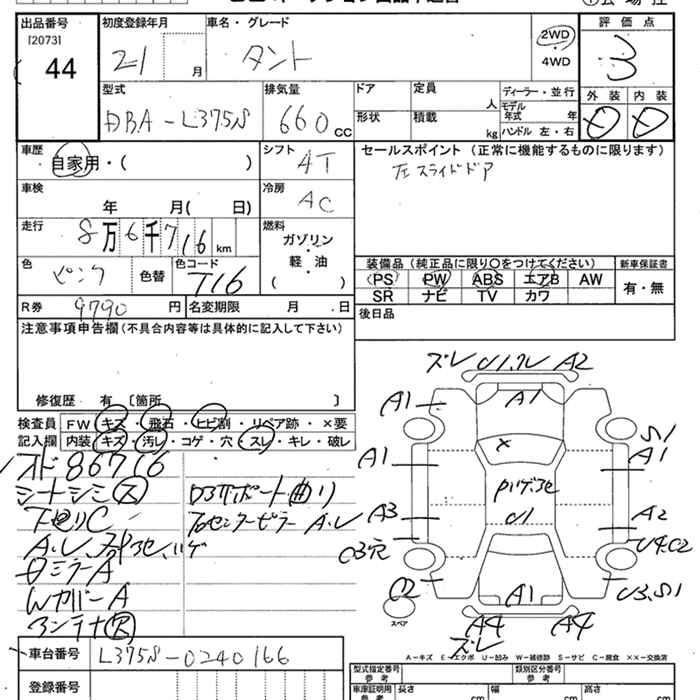 出品番号 初度登録年月 車名・グレード 評価点
[2073] 21 月 タント 2WD 3
44 4WD
外装 内装
型式 排気量 ドア 定員 ディーラー・並行
DBA-L375S 660 CC 人 モデル年式 年
形状 積載 kg ハンドル 左・右
車歴 シフト セールスポイント(正常に機能するものに限ります)
自家用・( ) 4T 左スライドドア
車検 冷房
年 月( 日) AC
走行 燃料
8万6千716km ガソリン
軽・油
( )
色 色替 色コード 装備品(純正品に限り○をつけてください) 新車保証書
ピンク T16 PS PW ABS エアB AW 有・無
SR ナビ TV カワ
R券 9790円 名変期限 月 日 後日品
注意事項申告欄(不具合内容等は具体的に記入して下さい)
修復歴 有 〔箇所 〕
検査員 FW キズ・飛石・ヒビ割・リペア跡・×要
記入欄 内装 キズ・汚レ・コゲ・穴・スレ・キレ・破レ
メド86716
シートシミ ス
下廻りC
Dミラー A
Wカバー A
アンテナ
コアサポート曲り
右センターピラー A.U
ズレ A2
A1 A1 S1
A1 A1
×
U1
A3 A2
C3穴 U4.C2
C2 A1 U3.S1
スペア A4 A4
ズレ
A-キズ E-エクボ U-凹み W-補修跡 S-サビ C-腐食 ××-交換済
車台番号 L375S-0240166
登録番号
型式指定番号 参考 類別区分番号 参考
車庫証明用 参考 長さ cm 幅 cm 高さ cm